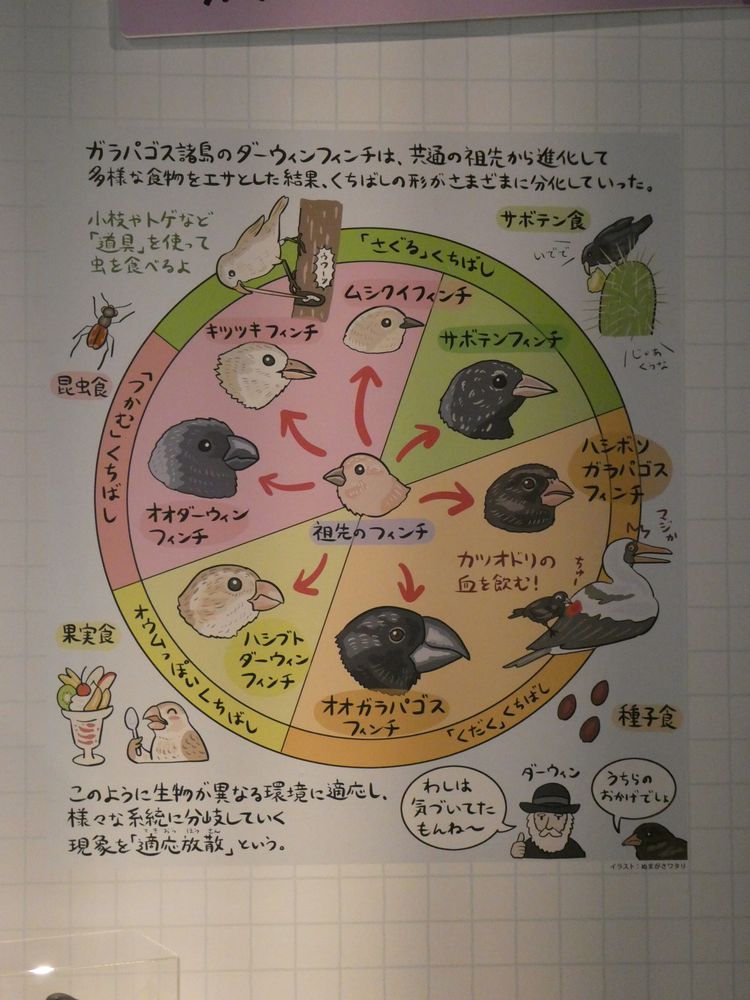 ガラパゴス諸島のダーウィンフィンチは、共通の祖先から進化して
多様な食物をエサとした結果、くちばしの形がさまざまに分化していった。
小枝やトゲなど
「道具」を使って
虫を食べるよ
サボテン食
いでで
じゃあ
くうな
「さぐる」くちばし
ムシクイフィンチ
キツツキフィンチ
サボテンフィンチ
昆虫食
「つかむ」くちばし
オオダーウィン
フィンチ
祖先のフィンチ
ハシボソ
ガラパゴス
フィンチ
マジか
カツオドリの
血を飲む!
ちゅー
果実食
オウムっぽいくちばし
ハシブト
ダーウィン
フィンチ
オオガラパゴス
フィンチ
「くだく」くちばし
種子食
このように生物が異なる環境に適応し、
様々な系統に分岐していく
現象を「適応放散」という。
てきおうほうさん
わしは
気づいてた
もんね〜
ダーウィン
うちらの
おかげでしょ
イラスト:ぬまがさワタリ